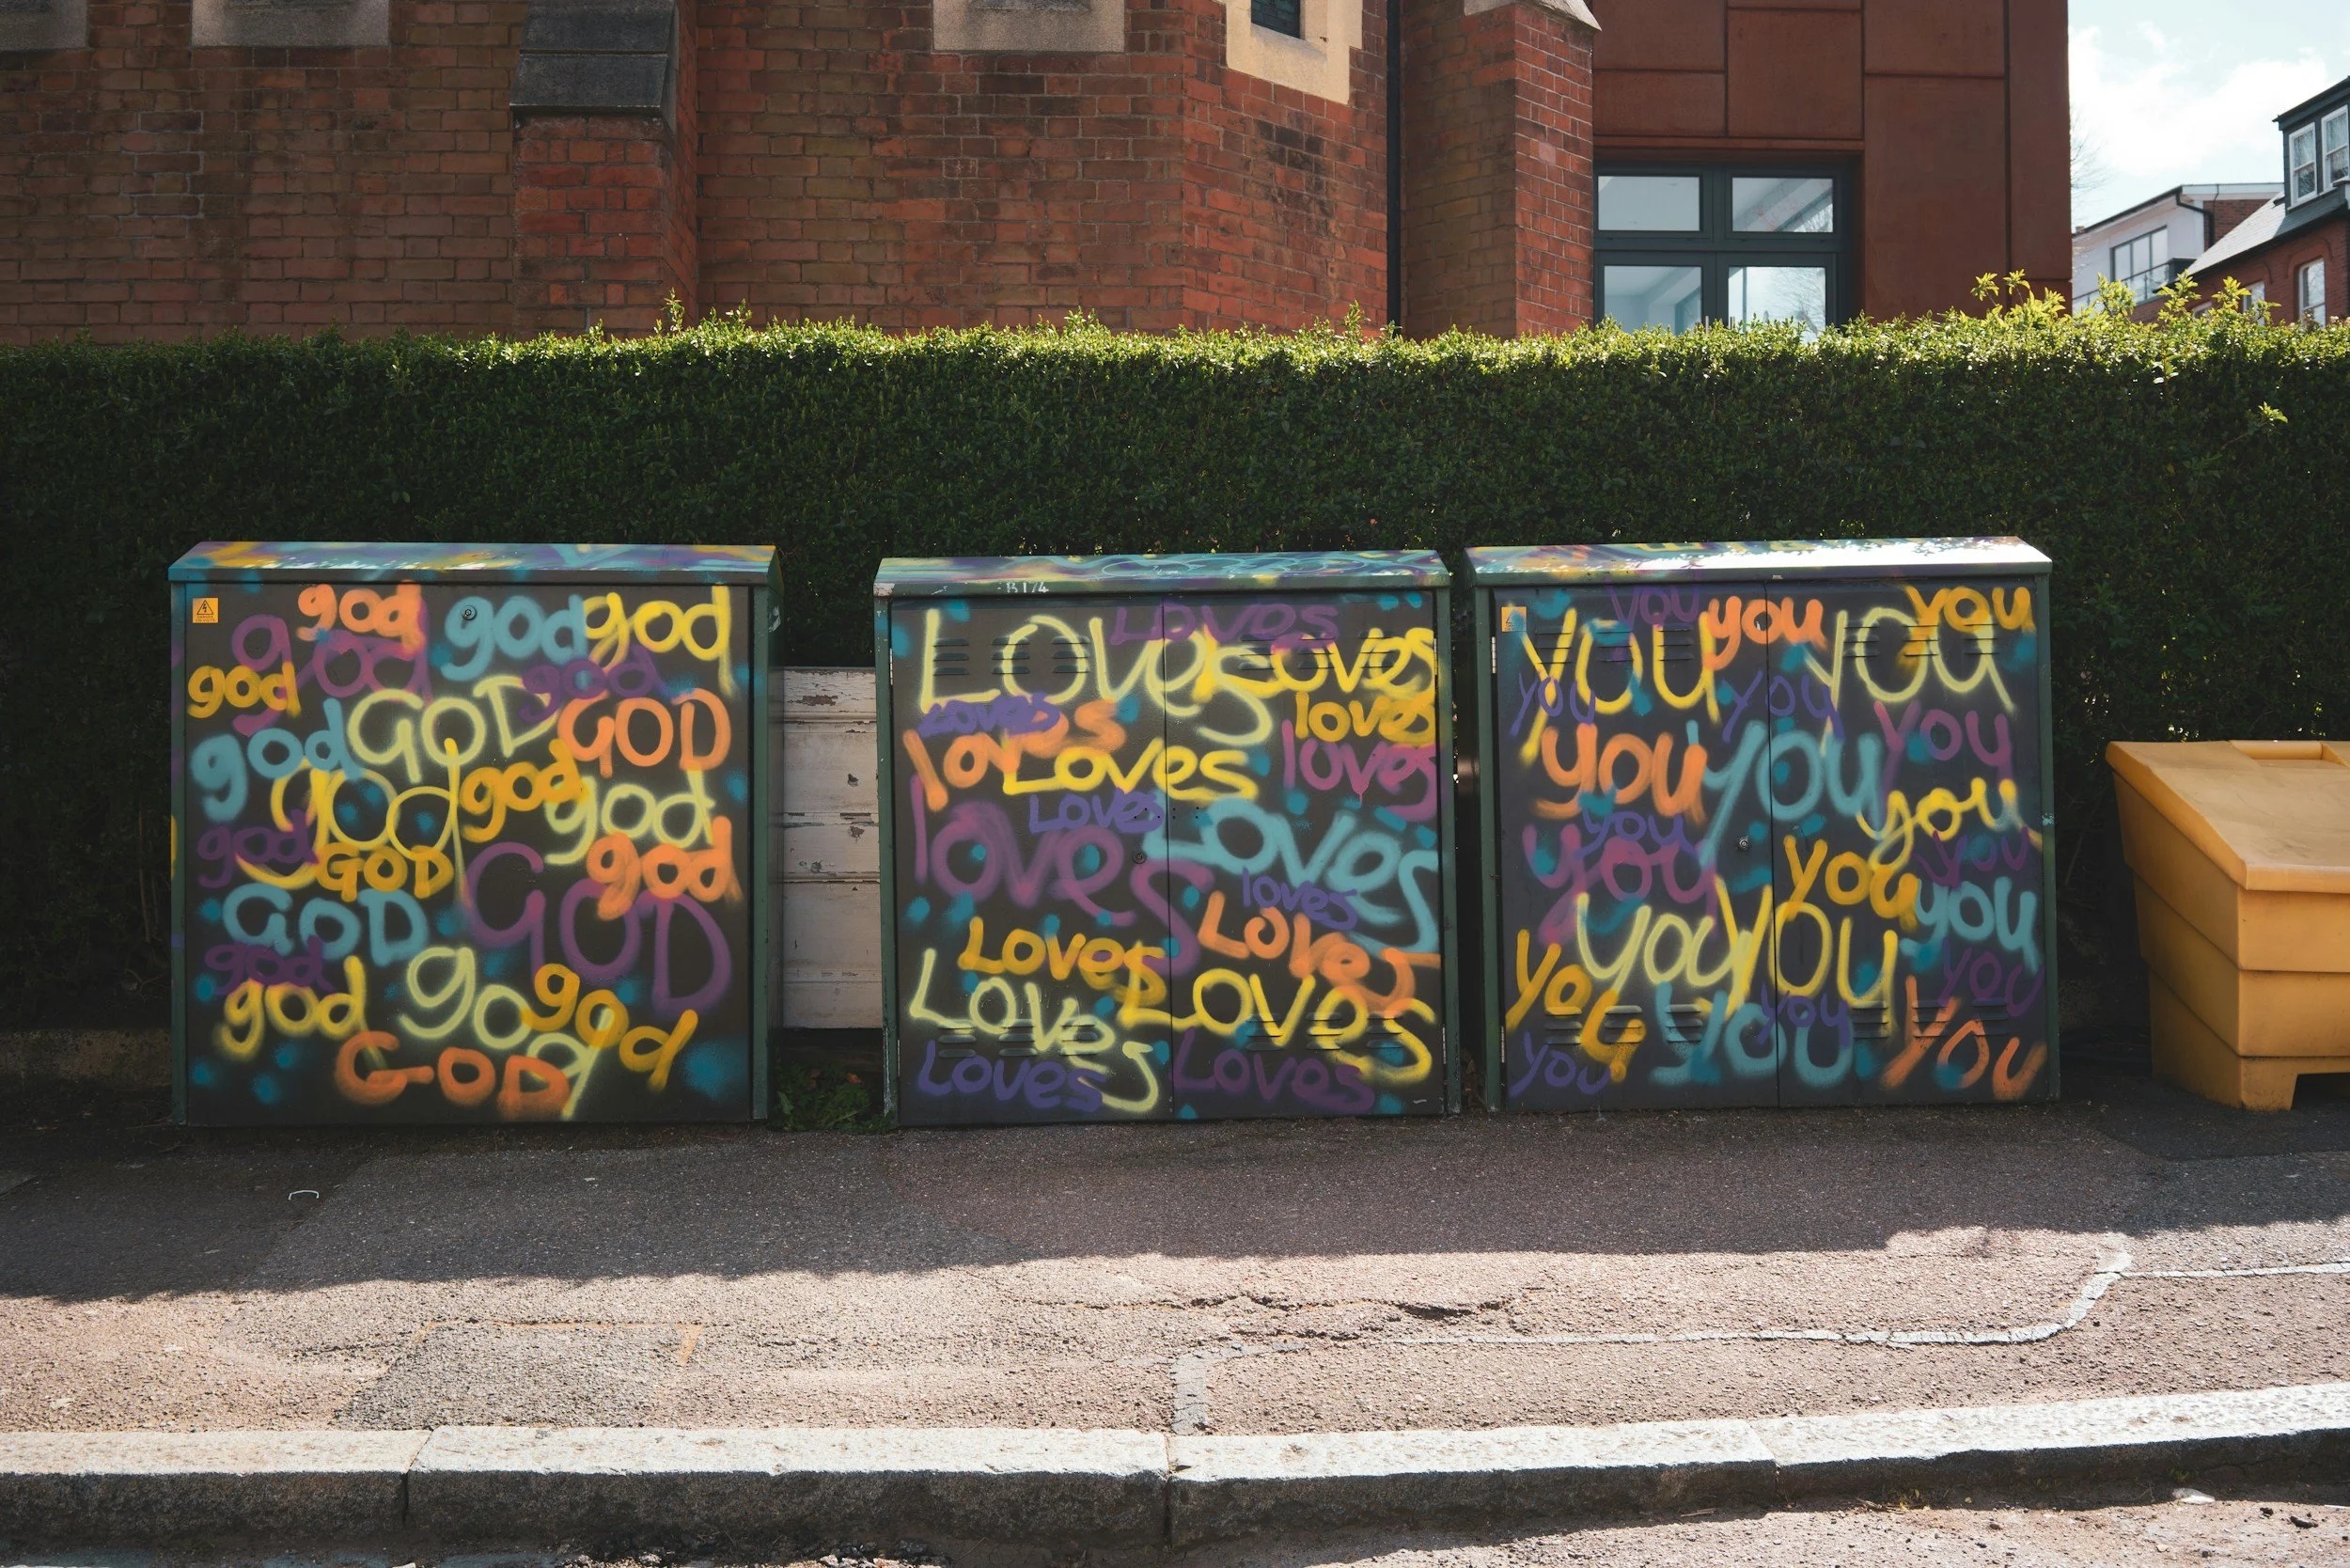 god god god
god god
god GOD GOD
god god god
god god god
GOD GOD
GOD
god god god
god god
GOD
B174
Loves Loves
Loves
Loves loves
loves
Loves loves
Loves
loves Loves
loves
Loves Loves
Loves Loves
Loves Loves
you you you
you you
you you
you you you
you you
you you you
you you
you you you
you you
you you you